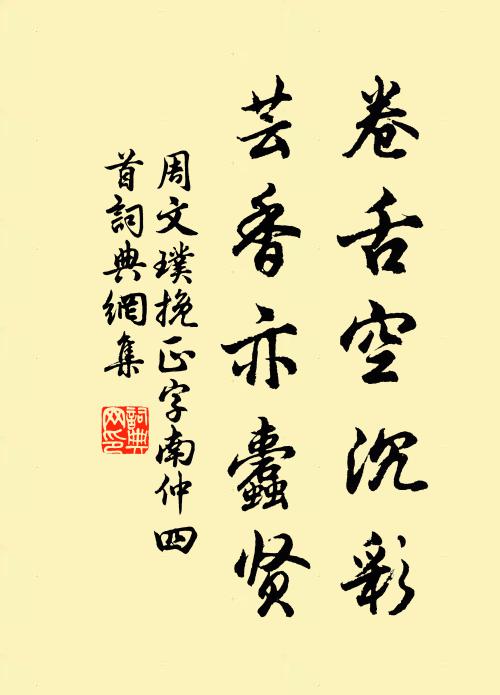 卷舌空沉彩
芸香亦蠹贤
周文璞挽正字南仲四
首詞典網集
詞典网印